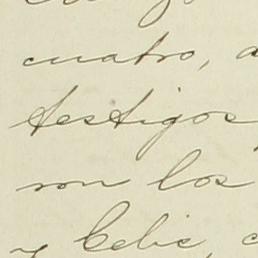 cuatro, a
testigos
son los
y Celis, c